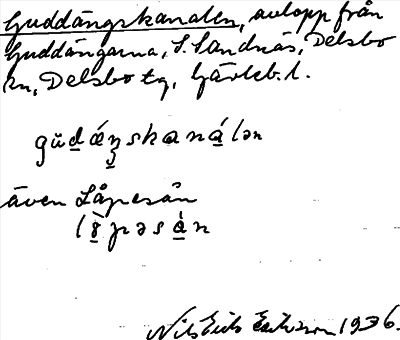 Guddängskanalen, avlopp från
Guddängarna, S. Sandnäs, Delsbo
sn, Delsbo tg, Gävleb. l.
gŭdǽŋskanálən
även Låpesån
lǫ̀pəsán
Nils Eriksson 1936.